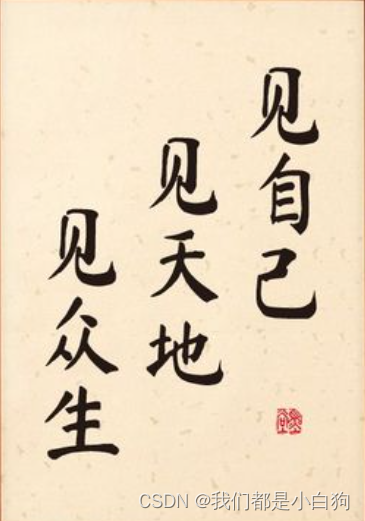 见自己
见天地
见众生
CSDN @我们都是小白狗